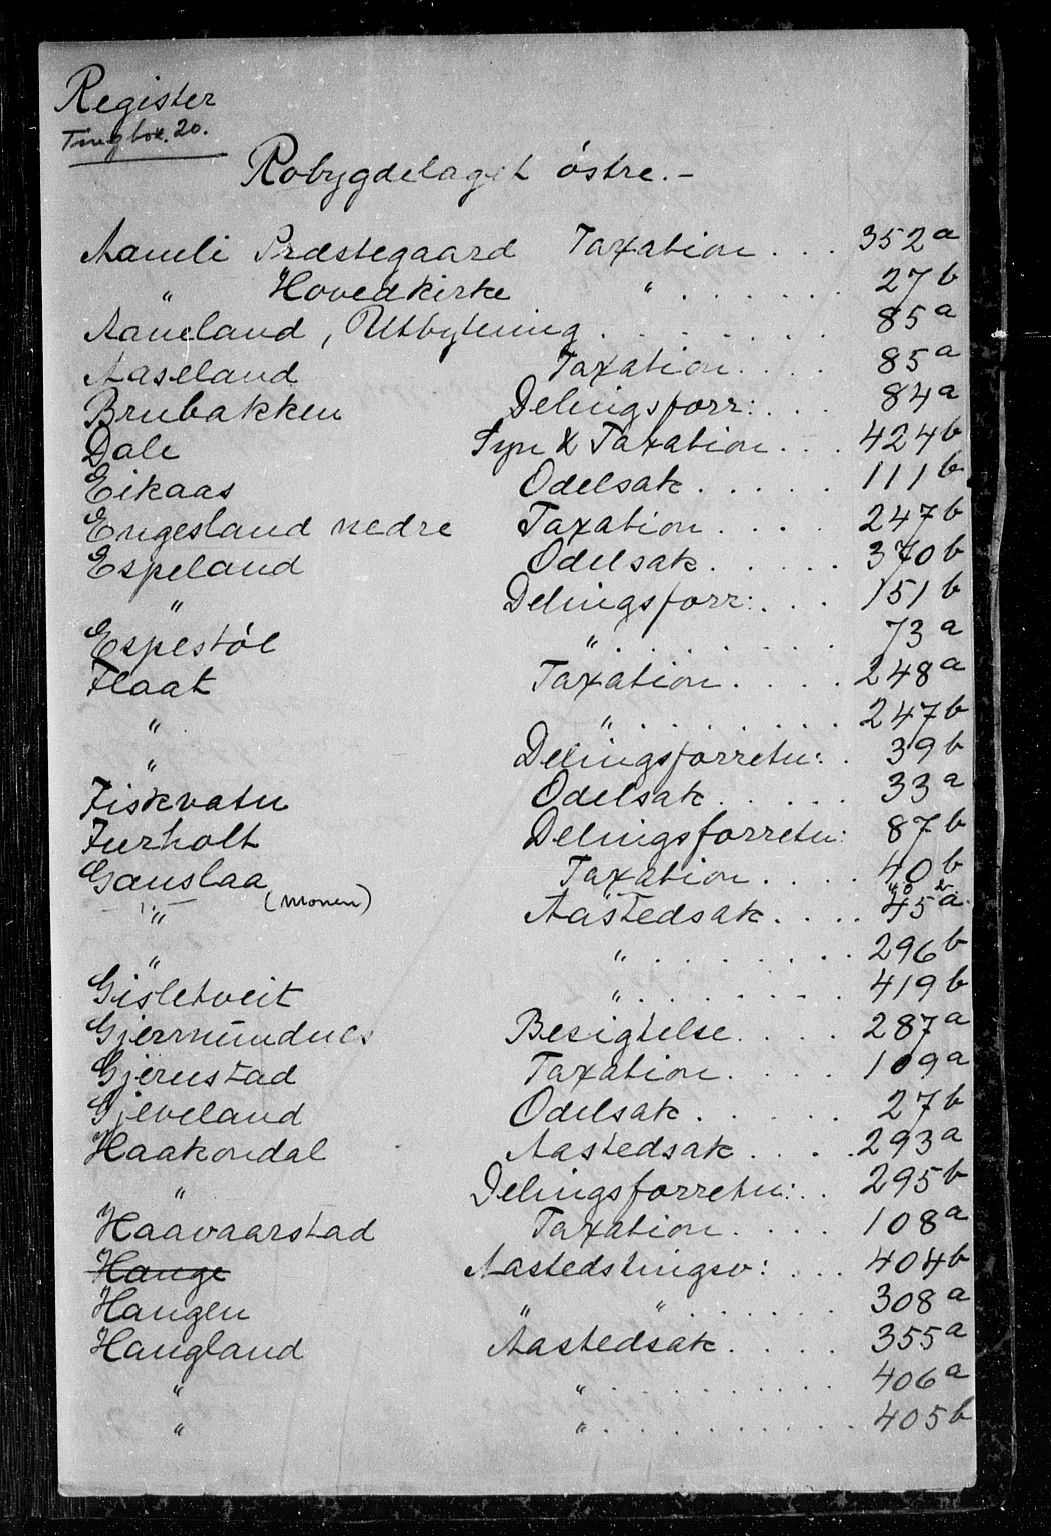 Register
Tingbok. 20.
Robygdelaget østre. -
Aamli Præstegaard Taxation . . . 352a
" Hovedkirke " . . . . . . . 27b
Aaneland, Utbytning . . . . . . . 85a
Aaseland Taxation . . . . 85a
Brubakken Delingsforr: . . . 84a
Dale Syn & Taxation . . . 424b
Eikaas Odelsak . . . . . 111b
Engesland nedre Taxation . . . . 247b
Espeland Odelsak . . . . . 370b
" Delingsforr: . . . 151b
Espestøl " . . . . . . . 73a
Flaat Taxation . . . . 248a
" " . . . . . . . 247b
" Delingsforretn: . 39b
Fiskvatn Odelsak . . . . . 33a
Furholt Delingsforretn: 87b
Gauslaa Taxation . . . . 40b
" (Monen) Aastedsak . . . . 45a
" " . . . . . . . 296b
Gisletveit " . . . . . . . 419b
Gjermundnes Besigtelse . . . . 287a
Gjerustad Taxation . . . . 109a
Gjeveland Odelsak . . . . . 27b
Haakondal Aastedsak . . . . 293a
" Delingsforretn: . . 295b
Haavaarstad Taxation . . . . 108a
Hauge Aastedstingsv: . . . 404b
Haugen " " . . . . . . 308a
Haugland Aastedsak . . . . . 355a
" " . . . . . . . . . 406a
" " . . . . . . . . . 405b